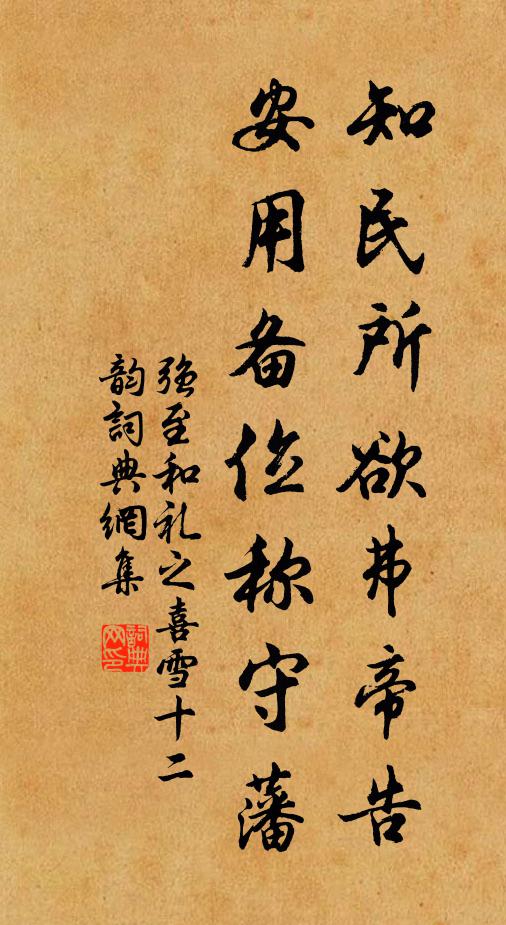 知民所欲弗帝告
安用备位称守藩
强至和礼之喜雪十二
韵詞典網集
詞典网印